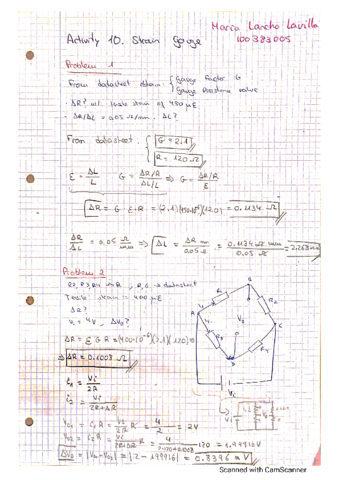 Marco Lancho Lavilla
100383005
Activity 10. Strain Gauge
Problem 1
From datasheet obtain { Gauge Factor G
Gauge Resistance value
· ΔR? w/ tensile strain of 450 με
· ΔR/ΔL = 0.05 Ω/mm. ΔL?
From datasheet { G = 2.1
R = 120 Ω
ε = ΔL/L G = (ΔR/R)/(ΔL/L) ⇒ G = (ΔR/R)/ε
ΔR = G · ε · R = (2.1)(450·10⁻⁶)(120) = 0.1134 Ω
ΔR/ΔL = 0.05 Ω/mm ⇒ ΔL = ΔR mm/0.05 Ω = 0.1134 Ω mm/0.05 Ω = 2.268 mm
Problem 2
R2, R3, R4 = R , R, G → datasheet
Tensile strain = 400 με
ΔR?
Vi = 4V , ΔV0?
ΔR = ε G R = (400·10⁻⁶)(2.1)(120) ⇒
⇒ ΔR = 0.1008 Ω
i1 = Vi/2R
i2 = Vi/(2R+ΔR)
V01 = i1 R = (Vi/2R) R = 4/2 = 2V
V02 = i2 R = (Vi/(2R+ΔR)) R = 120 = 1.99916V
ΔV0 = |V01 - V02| = |2 - 1.99916| = 0.8396 mV
A
B
C
D
Vi
Scanned with CamScanner